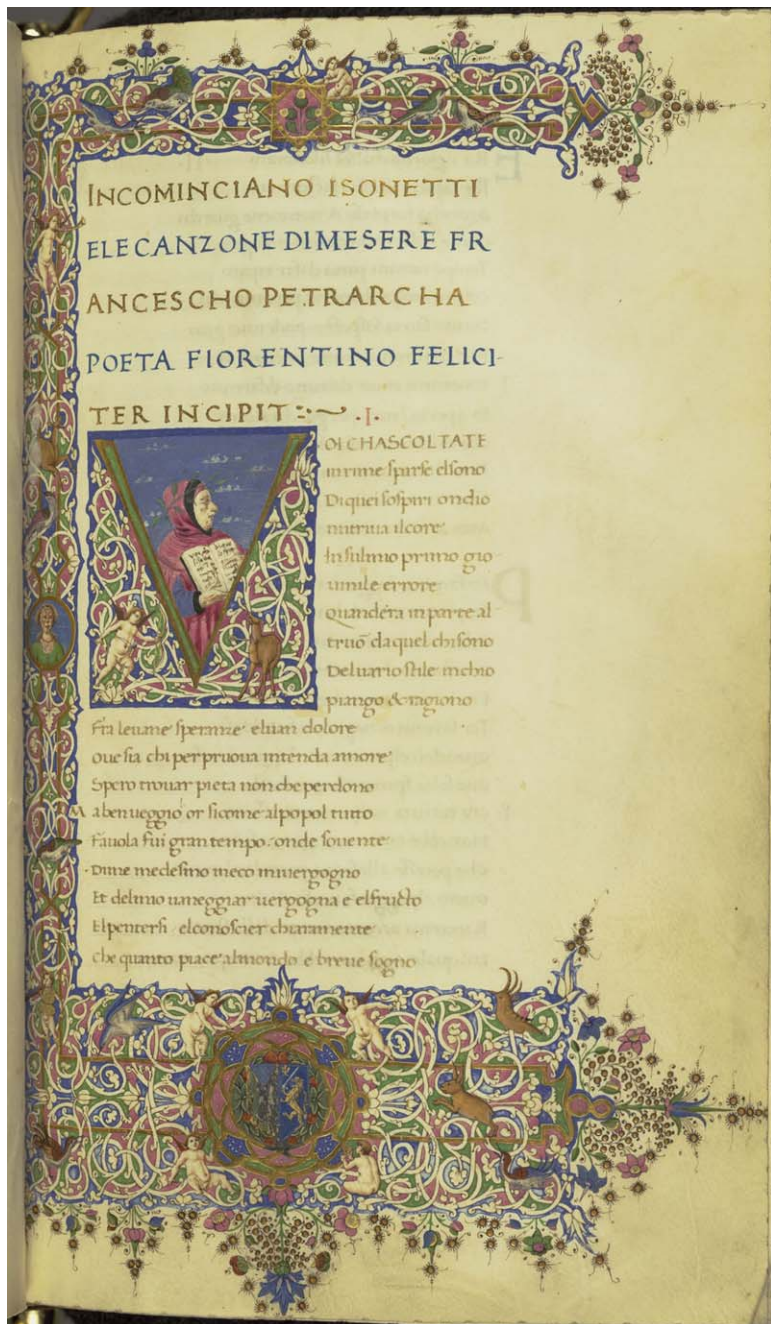 INCOMINCIANO ISONETTI
ELE CANZONE DIMESERE FR
ANCESCHO PETRARCHA
POETA FIORENTINO FELICI-
TER INCIPIT .I.
VOI CHASCOLTATE
in rime sparse elsono
Diquei sospiri ondio
nutriua ilcore
In sulmio primo gio
uinile errore
Quandera in parte al
truo daquel chisono
Deluario stile inchio
piango & ragiono
Fra leuane speranze eluan dolore
oue sia chi per pruoua intenda amore
Spero trouar pieta non che perdono
M abenueggio or sicome alpopol tutto
Fauola fui gran tempo: onde souente
Dime medesimo meco miuergogno
Et delmio uaneggiar uergogna e elfructo
Elpentersi elconoscier chiaramente
che quanto piace almondo e breue sogno